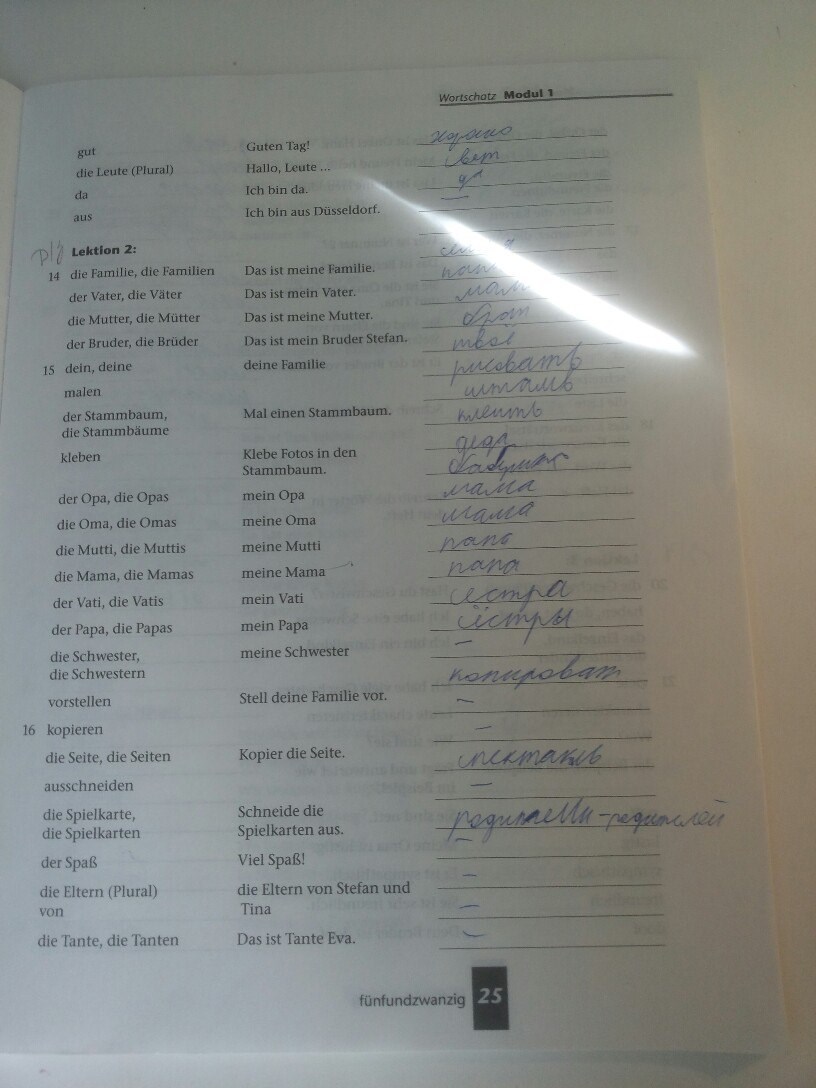 Wortschatz Modul 1
gut Guten Tag!
die Leute (Plural) Hallo, Leute ... свет
da Ich bin da. да
aus Ich bin aus Düsseldorf. —
Lektion 2:
14 die Familie, die Familien Das ist meine Familie.
der Vater, die Väter Das ist mein Vater.
die Mutter, die Mütter Das ist meine Mutter. брат
der Bruder, die Brüder Das ist mein Bruder Stefan. твоё
15 dein, deine deine Familie рисовать
malen штамб
der Stammbaum, Mal einen Stammbaum. клеить
die Stammbäume
kleben Klebe Fotos in den
Stammbaum.
der Opa, die Opas mein Opa мама
die Oma, die Omas meine Oma мама
die Mutti, die Muttis meine Mutti папа
die Mama, die Mamas meine Mama папа
der Vati, die Vatis mein Vati сестра
der Papa, die Papas mein Papa сёстры
die Schwester, meine Schwester —
die Schwestern копироват
vorstellen Stell deine Familie vor. —
16 kopieren —
die Seite, die Seiten Kopier die Seite. спектакль
ausschneiden —
die Spielkarte, Schneide die
die Spielkarten Spielkarten aus. родители-родителей
der Spaß Viel Spaß! —
die Eltern (Plural) die Eltern von Stefan und —
von Tina —
die Tante, die Tanten Das ist Tante Eva. —
fünfundzwanzig 25